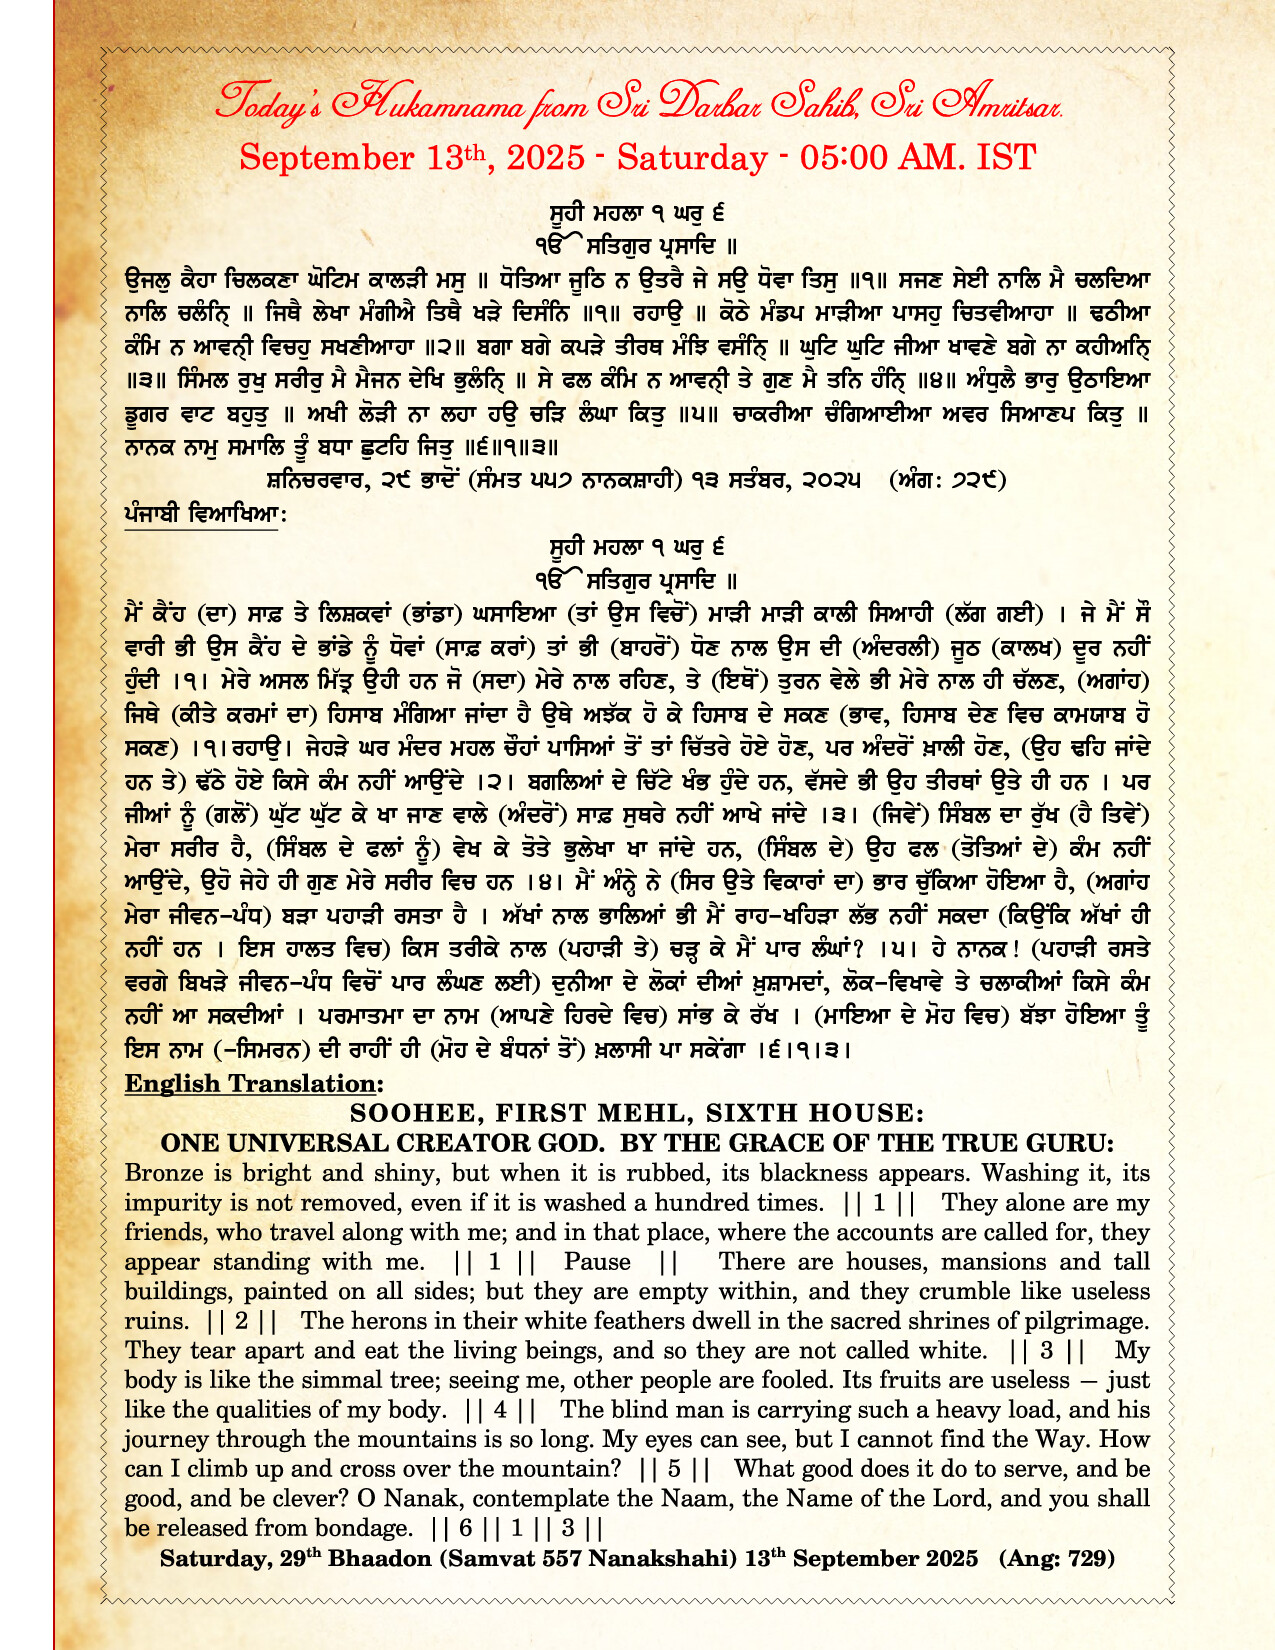 Today's Hukamnama from Sri Darbar Sahib, Sri Amritsar.
September 13th, 2025 - Saturday - 05:00 AM. IST
ਸੂਹੀ ਮਹਲਾ ੧ ਘਰੁ ੬
ੴ ਸਤਿਗੁਰ ਪ੍ਰਸਾਦਿ ॥
ਉਜਲੁ ਕੈਹਾ ਚਿਲਕਣਾ ਘੋਟਿਮ ਕਾਲੜੀ ਮਸੁ ॥ ਧੋਤਿਆ ਜੂਠਿ ਨ ਉਤਰੈ ਜੇ ਸਉ ਧੋਵਾ ਤਿਸੁ ॥੧॥ ਸਜਣ ਸੇਈ ਨਾਲਿ ਮੈ ਚਲਦਿਆ
ਨਾਲਿ ਚਲੰਨ੍ਹਿ ॥ ਜਿਥੈ ਲੇਖਾ ਮੰਗੀਐ ਤਿਥੈ ਖੜੇ ਦਿਸੰਨਿ ॥੧॥ ਰਹਾਉ ॥ ਕੋਠੇ ਮੰਡਪ ਮਾੜੀਆ ਪਾਸਹੁ ਚਿਤਵੀਆਹਾ ॥ ਢਠੀਆ
ਕੰਮਿ ਨ ਆਵਨ੍ਹੀ ਵਿਚਹੁ ਸਖਣੀਆਹਾ ॥੨॥ ਬਗਾ ਬਗੇ ਕਪੜੇ ਤੀਰਥ ਮੰਝਿ ਵਸੰਨ੍ਹਿ ॥ ਘੁਟਿ ਘੁਟਿ ਜੀਆ ਖਾਵਣੇ ਬਗੇ ਨਾ ਕਹੀਅਨ੍ਹਿ
॥੩॥ ਸਿੰਮਲ ਰੁਖੁ ਸਰੀਰੁ ਮੈ ਮੈਜਨ ਦੇਖਿ ਭੁਲੰਨ੍ਹਿ ॥ ਸੇ ਫਲ ਕੰਮਿ ਨ ਆਵਨ੍ਹੀ ਤੇ ਗੁਣ ਮੈ ਤਨਿ ਹੰਨ੍ਹਿ ॥੪॥ ਅੰਧੁਲੈ ਭਾਰੁ ਉਠਾਇਆ
ਡੂਗਰ ਵਾਟ ਬਹੁਤੁ ॥ ਅਖੀ ਲੋੜੀ ਨਾ ਲਹਾ ਹਉ ਚੜਿ ਲੰਘਾ ਕਿਤੁ ॥੫॥ ਚਾਕਰੀਆ ਚੰਗਿਆਈਆ ਅਵਰ ਸਿਆਣਪ ਕਿਤੁ ॥
ਨਾਨਕ ਨਾਮੁ ਸਮਾਲਿ ਤੂੰ ਬਧਾ ਛੁਟਹਿ ਜਿਤੁ ॥੬॥੧॥੩॥
ਸ਼ਨਿਚਰਵਾਰ, ੨੯ ਭਾਦੋਂ (ਸੰਮਤ ੫੫੭ ਨਾਨਕਸ਼ਾਹੀ) ੧੩ ਸਤੰਬਰ, ੨੦੨੫ (ਅੰਗ: ੭੨੯)
ਪੰਜਾਬੀ ਵਿਆਖਿਆ:
ਸੂਹੀ ਮਹਲਾ ੧ ਘਰੁ ੬
ੴ ਸਤਿਗੁਰ ਪ੍ਰਸਾਦਿ ॥
ਮੈਂ ਕੈਂਹ (ਦਾ) ਸਾਫ਼ ਤੇ ਲਿਸ਼ਕਵਾਂ (ਭਾਂਡਾ) ਘਸਾਇਆ (ਤਾਂ ਉਸ ਵਿਚੋਂ) ਮਾੜੀ ਮਾੜੀ ਕਾਲੀ ਸਿਆਹੀ (ਲੱਗ ਗਈ) । ਜੇ ਮੈਂ ਸੌ
ਵਾਰੀ ਭੀ ਉਸ ਕੈਂਹ ਦੇ ਭਾਂਡੇ ਨੂੰ ਧੋਵਾਂ (ਸਾਫ਼ ਕਰਾਂ) ਤਾਂ ਭੀ (ਬਾਹਰੋਂ) ਧੋਣ ਨਾਲ ਉਸ ਦੀ (ਅੰਦਰਲੀ) ਜੂਠ (ਕਾਲਖ) ਦੂਰ ਨਹੀਂ
ਹੁੰਦੀ ।੧। ਮੇਰੇ ਅਸਲ ਮਿੱਤ੍ਰ ਉਹੀ ਹਨ ਜੋ (ਸਦਾ) ਮੇਰੇ ਨਾਲ ਰਹਿਣ, ਤੇ (ਇਥੋਂ) ਤੁਰਨ ਵੇਲੇ ਭੀ ਮੇਰੇ ਨਾਲ ਹੀ ਚੱਲਣ, (ਅਗਾਂਹ)
ਜਿਥੇ (ਕੀਤੇ ਕਰਮਾਂ ਦਾ) ਹਿਸਾਬ ਮੰਗਿਆ ਜਾਂਦਾ ਹੈ ਉਥੇ ਅਝੱਕ ਹੋ ਕੇ ਹਿਸਾਬ ਦੇ ਸਕਣ (ਭਾਵ, ਹਿਸਾਬ ਦੇਣ ਵਿਚ ਕਾਮਯਾਬ ਹੋ
ਸਕਣ) ।੧।ਰਹਾਉ। ਜੇਹੜੇ ਘਰ ਮੰਦਰ ਮਹਲ ਚੌਹਾਂ ਪਾਸਿਆਂ ਤੋਂ ਤਾਂ ਚਿੱਤਰੇ ਹੋਏ ਹੋਣ, ਪਰ ਅੰਦਰੋਂ ਖ਼ਾਲੀ ਹੋਣ, (ਉਹ ਢਹਿ ਜਾਂਦੇ
ਹਨ ਤੇ) ਢੱਠੇ ਹੋਏ ਕਿਸੇ ਕੰਮ ਨਹੀਂ ਆਉਂਦੇ ।੨। ਬਗਲਿਆਂ ਦੇ ਚਿੱਟੇ ਖੰਭ ਹੁੰਦੇ ਹਨ, ਵੱਸਦੇ ਭੀ ਉਹ ਤੀਰਥਾਂ ਉਤੇ ਹੀ ਹਨ । ਪਰ
ਜੀਆਂ ਨੂੰ (ਗਲੋਂ) ਘੁੱਟ ਘੁੱਟ ਕੇ ਖਾ ਜਾਣ ਵਾਲੇ (ਅੰਦਰੋਂ) ਸਾਫ਼ ਸੁਥਰੇ ਨਹੀਂ ਆਖੇ ਜਾਂਦੇ ।੩। (ਜਿਵੇਂ) ਸਿੰਬਲ ਦਾ ਰੁੱਖ (ਹੈ ਤਿਵੇਂ)
ਮੇਰਾ ਸਰੀਰ ਹੈ, (ਸਿੰਬਲ ਦੇ ਫਲਾਂ ਨੂੰ) ਵੇਖ ਕੇ ਤੋਤੇ ਭੁਲੇਖਾ ਖਾ ਜਾਂਦੇ ਹਨ, (ਸਿੰਬਲ ਦੇ) ਉਹ ਫਲ (ਤੋਤਿਆਂ ਦੇ) ਕੰਮ ਨਹੀਂ
ਆਉਂਦੇ, ਉਹੋ ਜੇਹੇ ਹੀ ਗੁਣ ਮੇਰੇ ਸਰੀਰ ਵਿਚ ਹਨ ।੪। ਮੈਂ ਅੰਨ੍ਹੇ ਨੇ (ਸਿਰ ਉਤੇ ਵਿਕਾਰਾਂ ਦਾ) ਭਾਰ ਚੁੱਕਿਆ ਹੋਇਆ ਹੈ, (ਅਗਾਂਹ
ਮੇਰਾ ਜੀਵਨ-ਪੰਧ) ਬੜਾ ਪਹਾੜੀ ਰਸਤਾ ਹੈ । ਅੱਖਾਂ ਨਾਲ ਭਾਲਿਆਂ ਭੀ ਮੈਂ ਰਾਹ-ਖਹਿੜਾ ਲੱਭ ਨਹੀਂ ਸਕਦਾ (ਕਿਉਂਕਿ ਅੱਖਾਂ ਹੀ
ਨਹੀਂ ਹਨ । ਇਸ ਹਾਲਤ ਵਿਚ) ਕਿਸ ਤਰੀਕੇ ਨਾਲ (ਪਹਾੜੀ ਤੇ) ਚੜ੍ਹ ਕੇ ਮੈਂ ਪਾਰ ਲੰਘਾਂ? ।੫। ਹੇ ਨਾਨਕ! (ਪਹਾੜੀ ਰਸਤੇ
ਵਰਗੇ ਬਿਖੜੇ ਜੀਵਨ-ਪੰਧ ਵਿਚੋਂ ਪਾਰ ਲੰਘਣ ਲਈ) ਦੁਨੀਆ ਦੇ ਲੋਕਾਂ ਦੀਆਂ ਖ਼ੁਸ਼ਾਮਦਾਂ, ਲੋਕ-ਵਿਖਾਵੇ ਤੇ ਚਲਾਕੀਆਂ ਕਿਸੇ ਕੰਮ
ਨਹੀਂ ਆ ਸਕਦੀਆਂ । ਪਰਮਾਤਮਾ ਦਾ ਨਾਮ (ਆਪਣੇ ਹਿਰਦੇ ਵਿਚ) ਸਾਂਭ ਕੇ ਰੱਖ । (ਮਾਇਆ ਦੇ ਮੋਹ ਵਿਚ) ਬੱਝਾ ਹੋਇਆ ਤੂੰ
ਇਸ ਨਾਮ (-ਸਿਮਰਨ) ਦੀ ਰਾਹੀਂ ਹੀ (ਮੋਹ ਦੇ ਬੰਧਨਾਂ ਤੋਂ) ਖ਼ਲਾਸੀ ਪਾ ਸਕੇਂਗਾ ।੬।੧।੩।
English Translation:
SOOHEE, FIRST MEHL, SIXTH HOUSE:
ONE UNIVERSAL CREATOR GOD. BY THE GRACE OF THE TRUE GURU:
Bronze is bright and shiny, but when it is rubbed, its blackness appears. Washing it, its
impurity is not removed, even if it is washed a hundred times. || 1 || They alone are my
friends, who travel along with me; and in that place, where the accounts are called for, they
appear standing with me. || 1 || Pause || There are houses, mansions and tall
buildings, painted on all sides; but they are empty within, and they crumble like useless
ruins. || 2 || The herons in their white feathers dwell in the sacred shrines of pilgrimage.
They tear apart and eat the living beings, and so they are not called white. || 3 || My
body is like the simmal tree; seeing me, other people are fooled. Its fruits are useless – just
like the qualities of my body. || 4 || The blind man is carrying such a heavy load, and his
journey through the mountains is so long. My eyes can see, but I cannot find the Way. How
can I climb up and cross over the mountain? || 5 || What good does it do to serve, and be
good, and be clever? O Nanak, contemplate the Naam, the Name of the Lord, and you shall
be released from bondage. || 6 || 1 || 3 ||
Saturday, 29th Bhaadon (Samvat 557 Nanakshahi) 13th September 2025 (Ang: 729)